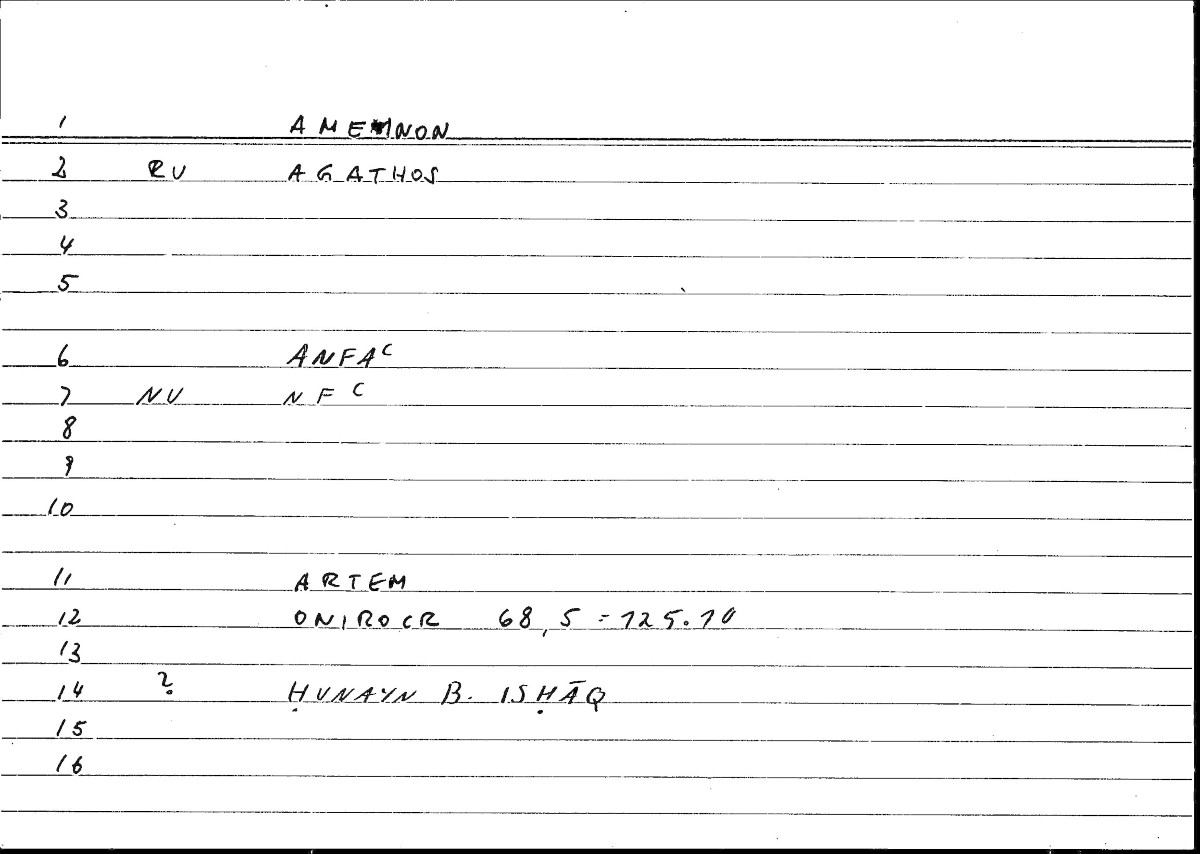 1 AMEINON
2 RU AGATHOS
3
4
5
6 ANFAᶜ
7 NU NFᶜ
8
9
10
11 ARTEM
12 ONIROCR 68,5 = 125.10
13
14 ? ḤUNAYN B. ISḤĀQ
15
16